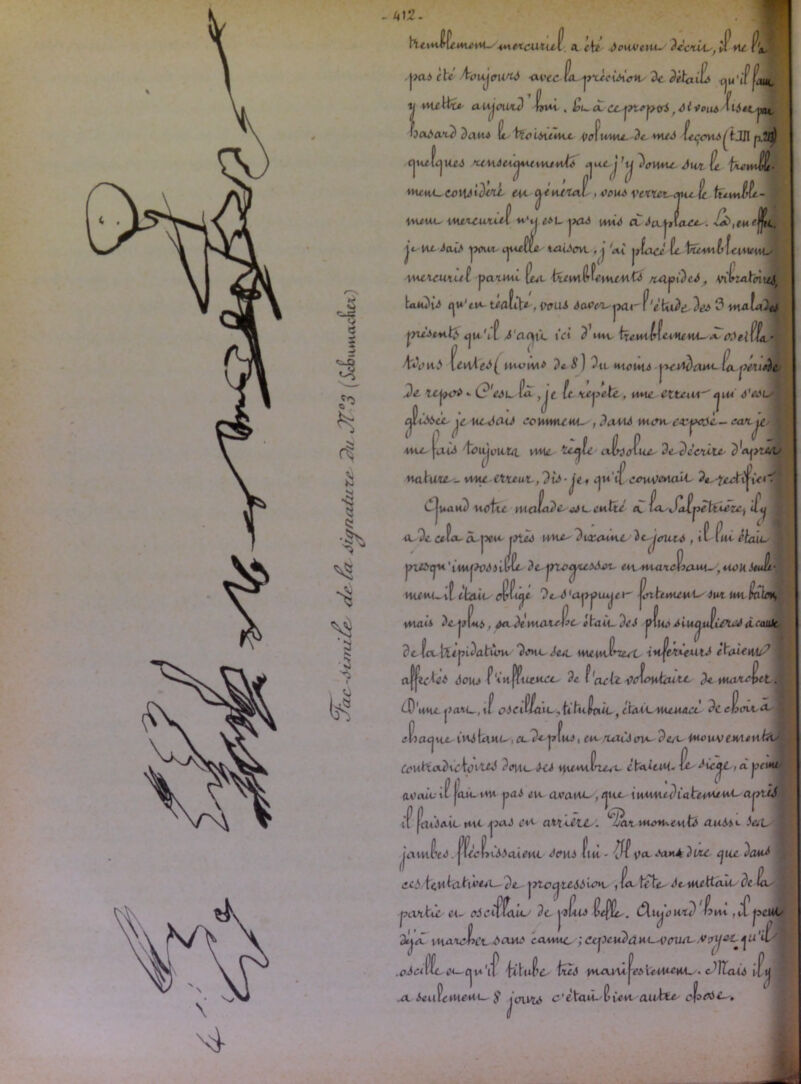 - 412 -
tremblement mercuriel a été souvent décrit, il ne l'a
pas été toujours avec la précision de détails qu'il faut
y mettre aujourd'hui. Et à ce propos, si vous lisez par
hasard dans le troisième volume de mes leçons (t. III p.
quelques renseignements que j'y donne sur le tremble-
ment considéré en général, vous verrez que le tremble-
ment mercuriel n'y est pas mis à sa place. Là, en effet,
je ne sais pour quelle raison, j'ai placé le tremblement
mercuriel parmi les tremblements rapides, vibratoires,
tandis qu'en réalité, vous savez par l'étude des 3 malades
présents qu'il s'agit ici d'un tremblement à oscilla-
tions lentes (moins de 8) du moins pendant la période
de repos. C'est là, je le répète, une erreur qui s'est
glissée je ne sais comment, dans mon exposé - car je
me fais toujours une règle absolue de décrire d'après
nature - une erreur, dis-je, qu'il convenait de rectifier.
Quand notre malade est entré à la Salpêtrière, il y
a de cela à peu près une dizaine de jours, il lui était
presqu'impossible de progresser en marchant, non seule-
ment il était obligé de s'appuyer fortement sur un bâton,
mais de plus, sa démarche était des plus singulières à cause
de la trépidation dont ses membres inférieurs étaient
affectés sous l'influence de l'acte volontaire de marcher.
D'une part, il oscillait, titubait, était menacé de choir à
chaque instant, et de plus, en raison des mouvements
contradictoires dont ses membres étaient le siège, à peine
avait il fait un pas en avant, que immédiatement après
il faisait un pas en arrière. Par moments aussi ses
jambes fléchissaient sous lui. Il va sans dire que dans
ces tentatives de progression, la tête se mettait de la
partie et oscillait de plus belle. Aujourd'hui, il peut
déjà marcher sans canne; cependant vous voyez qu'il
oscille et qu'il titube très manifestement. Mais il y
a seulement 8 jours c'était bien autre chose.
Fac-simile de la signature du N°3 (Schumacher)